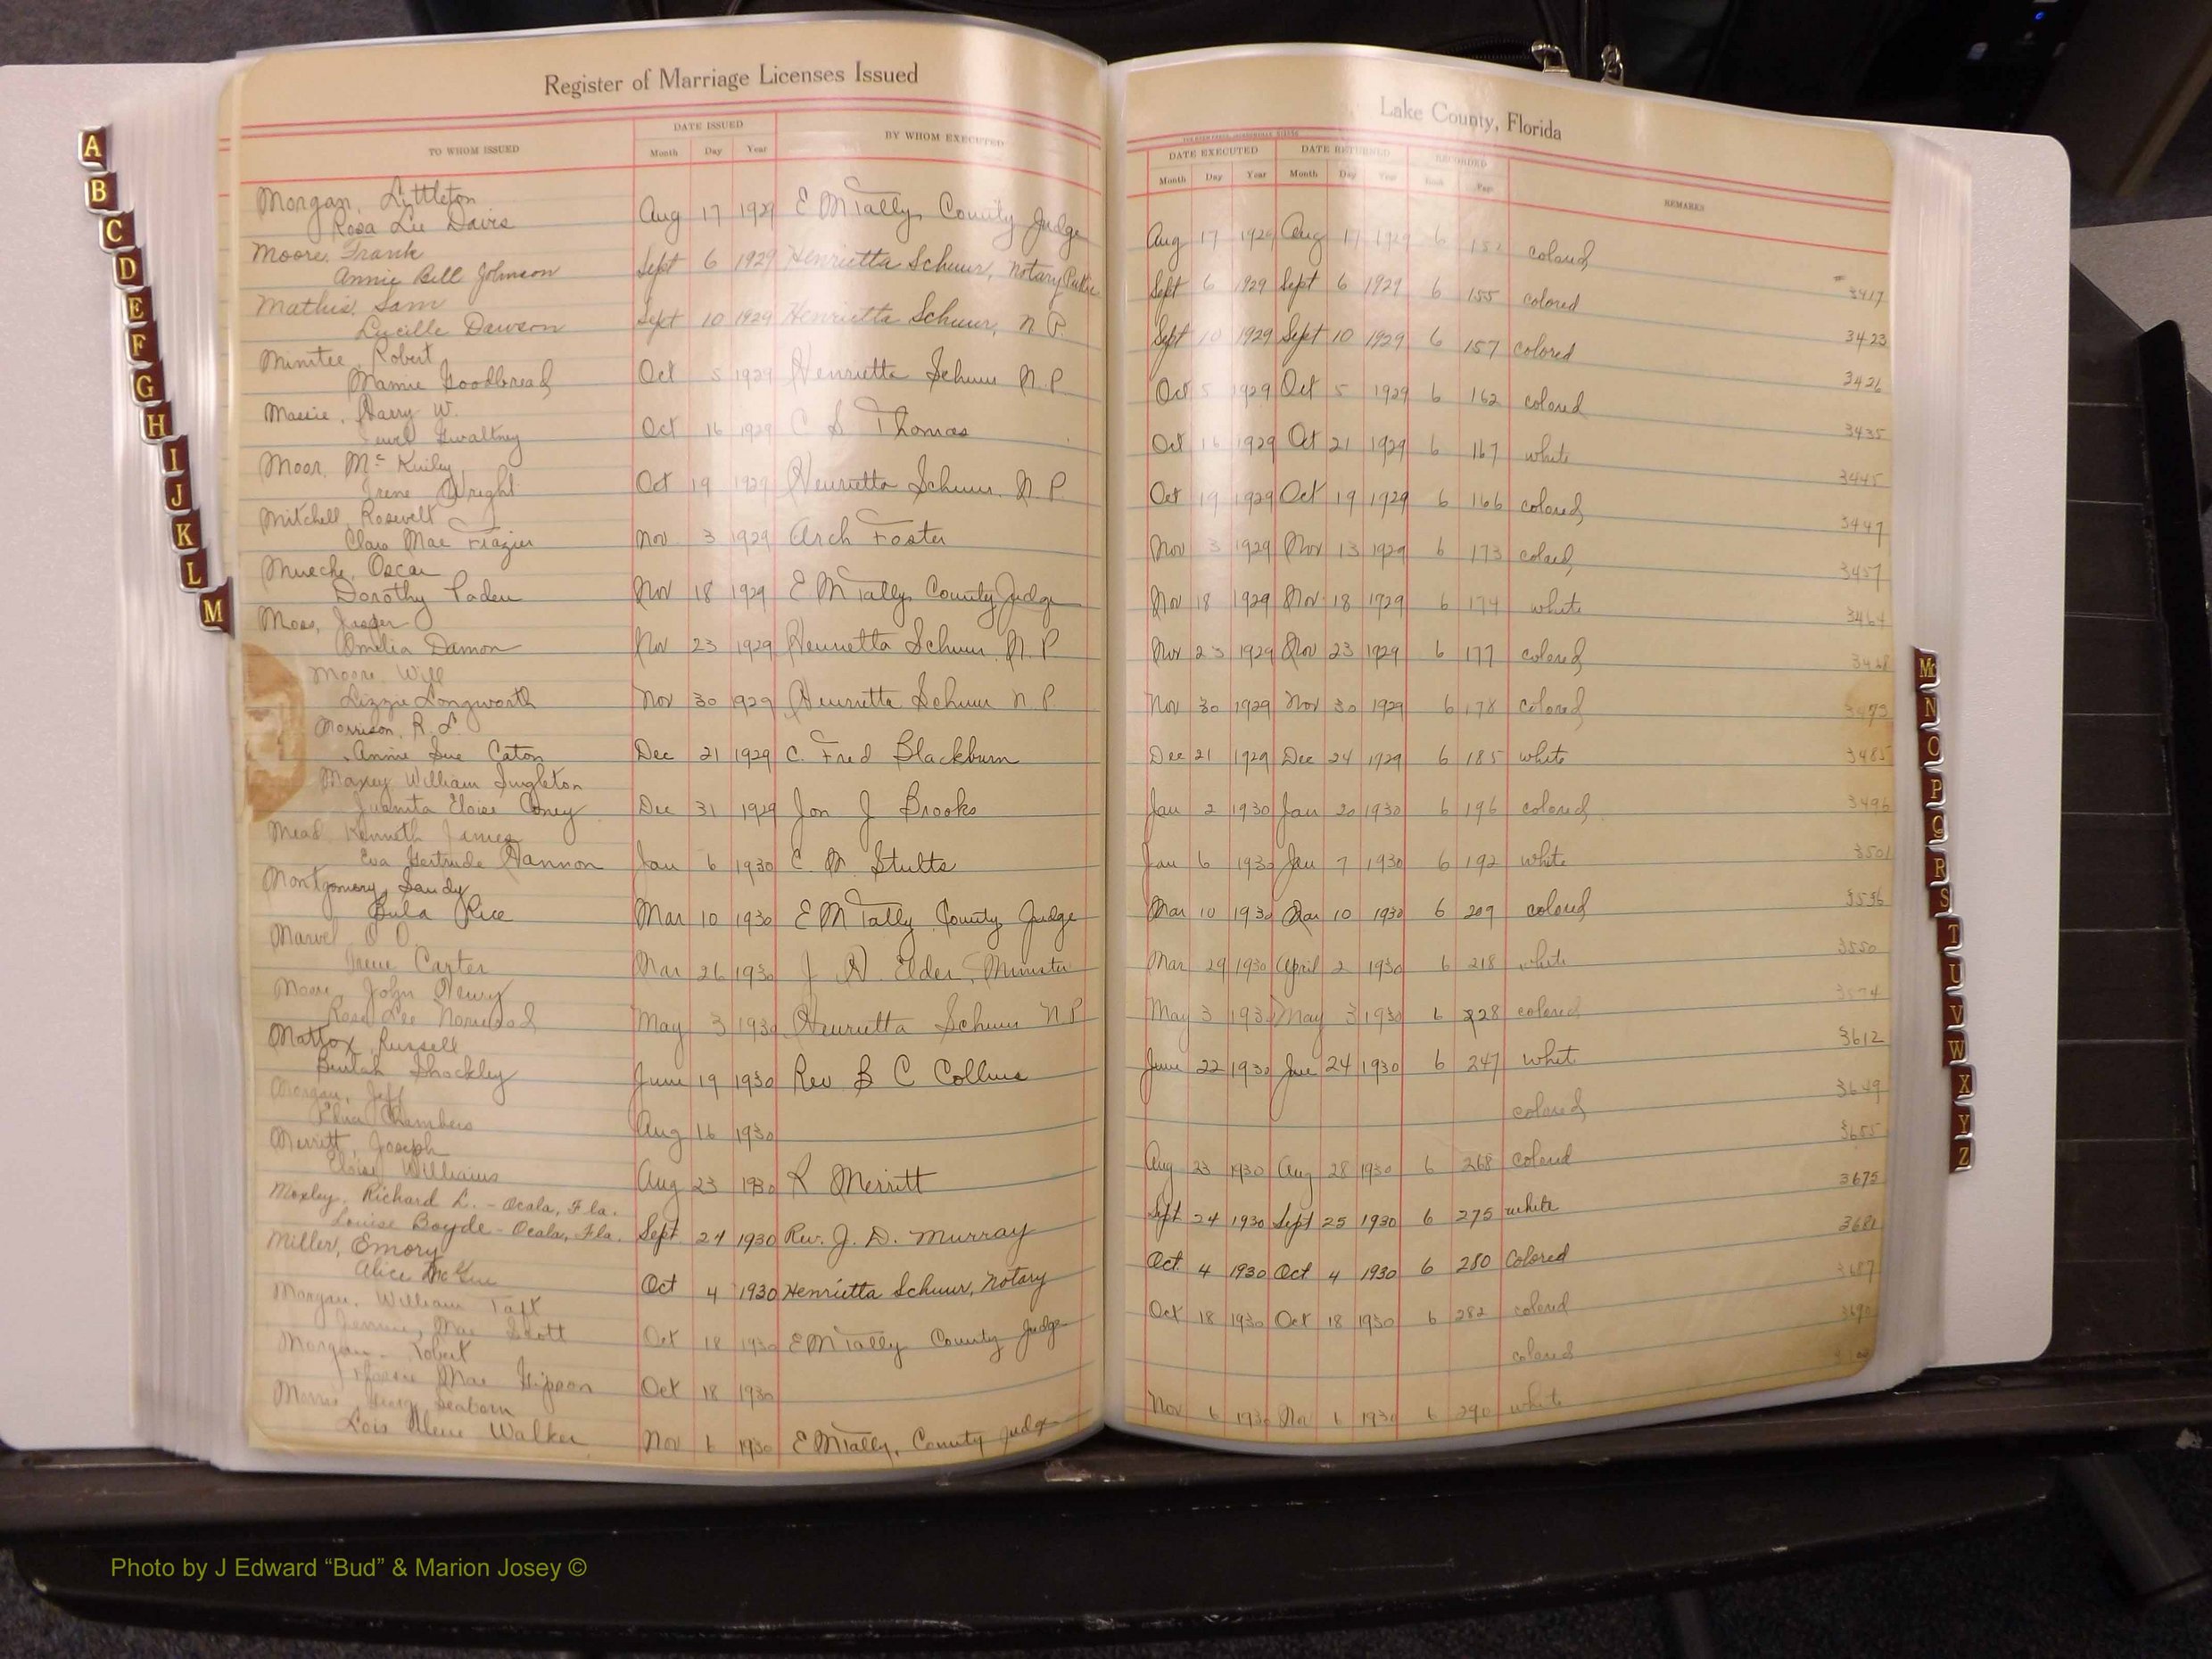 Register of Marriage Licenses Issued
TO WHOM ISSUED
DATE ISSUED
Month Day Year
BY WHOM EXECUTED
Morgan, Lyttleton
Rosa Lee Davis Aug 17 1929 E M Tally County Judge
Moore, Frank
Annie Bell Johnson Sept 6 1929 Henrietta Schuur, Notary Public
Mathis, Sam
Lucille Dawson Sept 10 1929 Henrietta Schuur, N P.
Minitee, Robert
Mamie Goodbread Oct 5 1929 Henrietta Schuur N.P
Massie, Harry W.
Jewel Gwaltney Oct 16 1929 C S Thomas
Moor, Irene Wright Oct 19 1929 Henrietta Schuur N P
Mitchell, Rosevelt
Clara Mae Frazier Nov 3 1929 Arch Foster
Oscar
Dorothy Paden Nov 18 1929 E M Tally County Judge
Moss, Jasper
Amelia Damon Nov 23 1929 Henrietta Schuur N.P
Moore Will
Lizzie Longworth Nov 30 1929 Henrietta Schuur N P.
Morrison, R. L.
Annie Sue Caton Dec 21 1929 C. Fred Blackburn
Maxey William Singleton
Juanita Eloise Coney Dec 31 1929 Jon J Brooks
Mead Kenneth James
Eva Gertrude Hannon Jan 6 1930 C. M. Stults
Montgomery, Sandy
Bula Rice Mar 10 1930 E M Tally County Judge
Marvel O O.
Irene Carter Mar 26 1930 J H Elder, Minister
Moore, John Henry
Rosa Lee Norwood May 3 1930 Henrietta Schuur N P
Mattox, Russell
Beulah Shockley June 19 1930 Rev B C Collins
Morgan, Jeff
Chambers Aug 16 1930
Merritt, Joseph
Eloise Williams Aug 23 1930 R Merritt
Moxley, Richard L. - Ocala, Fla.
Louise Boyde - Ocala, Fla. Sept. 24 1930 Rev. J. D. Murray
Miller, Emory
Alice McGee Oct 4 1930 Henrietta Schuur, Notary
Morgan, William Taft
Jennie Mae Scott Oct 18 1930 E M Tally County Judge
Morgan, Robert
Mae Gipson Oct 18 1930
Seaborn
Lois Walker Nov 6 1930 E M Tally, County Judge
Lake County, Florida
DATE EXECUTED
DATE RETURNED
RECORDED
Month Day Year Month Day Year Book Page
REMARKS
Aug 17 1929 Aug 17 1929 6 152 colored
3417
Sept 6 1929 Sept 6 1929 6 155 colored
3423
Sept 10 1929 Sept 10 1929 6 157 colored
3426
Oct 5 1929 Oct 5 1929 6 162 colored
3435
Oct 16 1929 Oct 21 1929 6 167 white
3445
Oct 19 1929 Oct 19 1929 6 166 colored
3447
Nov 3 1929 Nov 13 1929 6 173 colored
3457
Nov 18 1929 Nov 18 1929 6 174 white
3464
Nov 23 1929 Nov 23 1929 6 177 colored
3468
Nov 30 1929 Nov 30 1929 6 178 colored
3473
Dec 21 1929 Dec 24 1929 6 185 white
3485
Jan 2 1930 Jan 20 1930 6 196 colored
3496
Jan 6 1930 Jan 7 1930 6 192 white
3501
Mar 10 1930 Mar 10 1930 6 209 colored
3536
Mar 29 1930 April 2 1930 6 218 white
3550
May 3 1930 May 3 1930 6 228 colored
3574
June 22 1930 June 24 1930 6 247 white
3612
colored
3649
Aug 23 1930 Aug 28 1930 6 268 colored
3655
Sept 24 1930 Sept 25 1930 6 275 white
3675
Oct. 4 1930 Oct 4 1930 6 280 Colored
3681
Oct 18 1930 Oct 18 1930 6 282 colored
3687
colored
3690
Nov 6 1930 Nov 6 1930 6 290 white
A
B
C
D
E
F
G
H
I
J
K
L
M
Mc
N
O
P
Q
R
S
T
U
V
W
X
Y
Z
Photo by J Edward “Bud” & Marion Josey ©